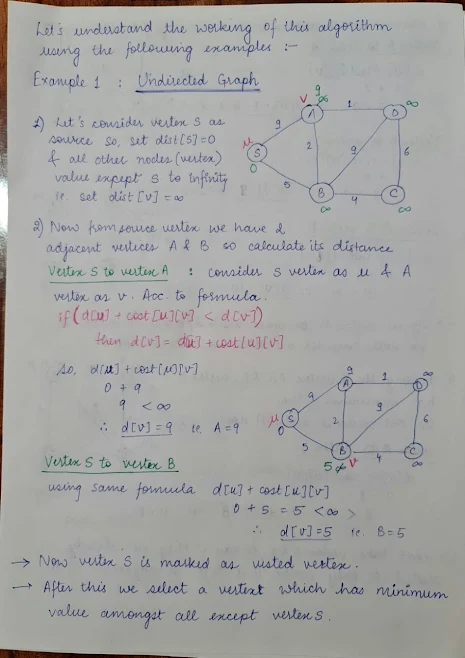 Let's understand the working of this algorithm
using the following examples :-
Example 1 : Undirected Graph
1) Let's consider vertex S as
source so, set dist[S]=0
& all other nodes (vertex)
value except S to infinity
ie. set dist [v] = ∞
u
S
0
v
9
∞
A
1
D
∞
9
2
9
6
5
B
∞
4
C
∞
2) Now from source vertex we have 2
adjacent vertices A & B so calculate its distance
Vertex S to vertex A : consider S vertex as u & A
vertex as v. Acc. to formula.
if (d[u] + cost [u][v] < d[v])
then d[v] = d[u] + cost[u][v]
So, d[u] + cost[u][v]
0 + 9
9 < ∞
∴ d[v] = 9 ie. A=9
u
S
0
9
A
1
D
∞
9
2
9
6
5
B
5 ∞ v
4
C
∞
Vertex S to vertex B
using same formula d[u] + cost[u][v]
0 + 5 = 5 < ∞ >
∴ d[v] = 5 ie. B=5
→ Now vertex S is marked as visted vertex.
→ After this we select a vertext which has minimum
value amongst all except vertex S.